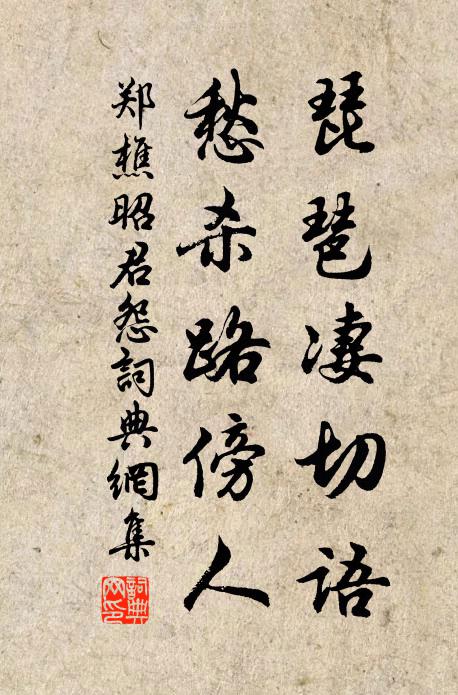 琵琶凄切語
愁杀路傍人
郑樵昭君怨詞典網集
詞典網印